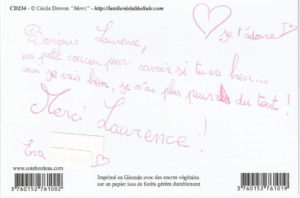 CD234 - © Cécile Drevon "Merci" - http://latelierdelalibellule.com
je t'adore
Bonjour Laurence,
un petit coucou pour savoir si tu va bien...
moi je vais bien, je n'ai plus peur du tout !
Merci Laurence !
Eva
www.cotebordeau.com
Imprimé en Gironde avec des encres végétales
sur un papier issu de forêts gérées durablement
3 760152 761002
3 760152 761019